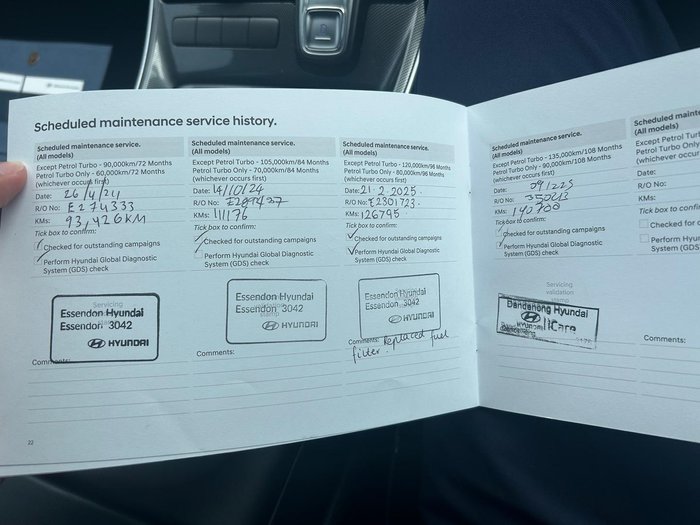 Scheduled maintenance service history.
Scheduled maintenance service.
(All models)
Except Petrol Turbo - 90,000km/72 Months
Petrol Turbo Only - 60,000km/72 Months
(whichever occurs first)
Date: 26/4/24
R/O No: E274333
KMs: 93,426KM
Tick box to confirm:
Checked for outstanding campaigns
Perform Hyundai Global Diagnostic
System (GDS) check
Servicing
Essendon Hyundai
Essendon 3042
HYUNDAI
Comments:
22
Scheduled maintenance service.
(All models)
Except Petrol Turbo - 105,000km/84 Months
Petrol Turbo Only - 70,000km/84 Months
(whichever occurs first)
Date: 14/10/24
R/O No:
KMs: 111176
Tick box to confirm:
Checked for outstanding campaigns
Perform Hyundai Global Diagnostic
System (GDS) check
Essendon Hyundai
Essendon 3042
HYUNDAI
Comments:
Scheduled maintenance service.
(All models)
Except Petrol Turbo - 120,000km/96 Months
Petrol Turbo Only - 80,000km/96 Months
(whichever occurs first)
Date: 21.2.2025.
R/O No: E2301723.
KMs: 126795.
Tick box to confirm:
Checked for outstanding campaigns
Perform Hyundai Global Diagnostic
System (GDS) check
Essendon Hyundai
Essendon 3042
HYUNDAI
Comments: Replaced fuel
filter.
Scheduled maintenance service.
(All models)
Except Petrol Turbo - 135,000km/108 Months
Petrol Turbo Only - 90,000km/108 Months
(whichever occurs first)
Date:
R/O No:
KMs: 140700
Tick box to confirm:
Checked for outstanding campaigns
Perform Hyundai Global Diagnostic
System (GDS) check
Servicing
validation
stamp
Dandenong Hyundai
HYUNDAI iCare
Comments:
Scheduled maint
(All models)
Except Petrol Tu
Petrol Turbo Onl
(whichever occu
Date:
R/O No:
KMs:
Tick box to conf
Checked fo
Perform Hy
System (GD
Comments: